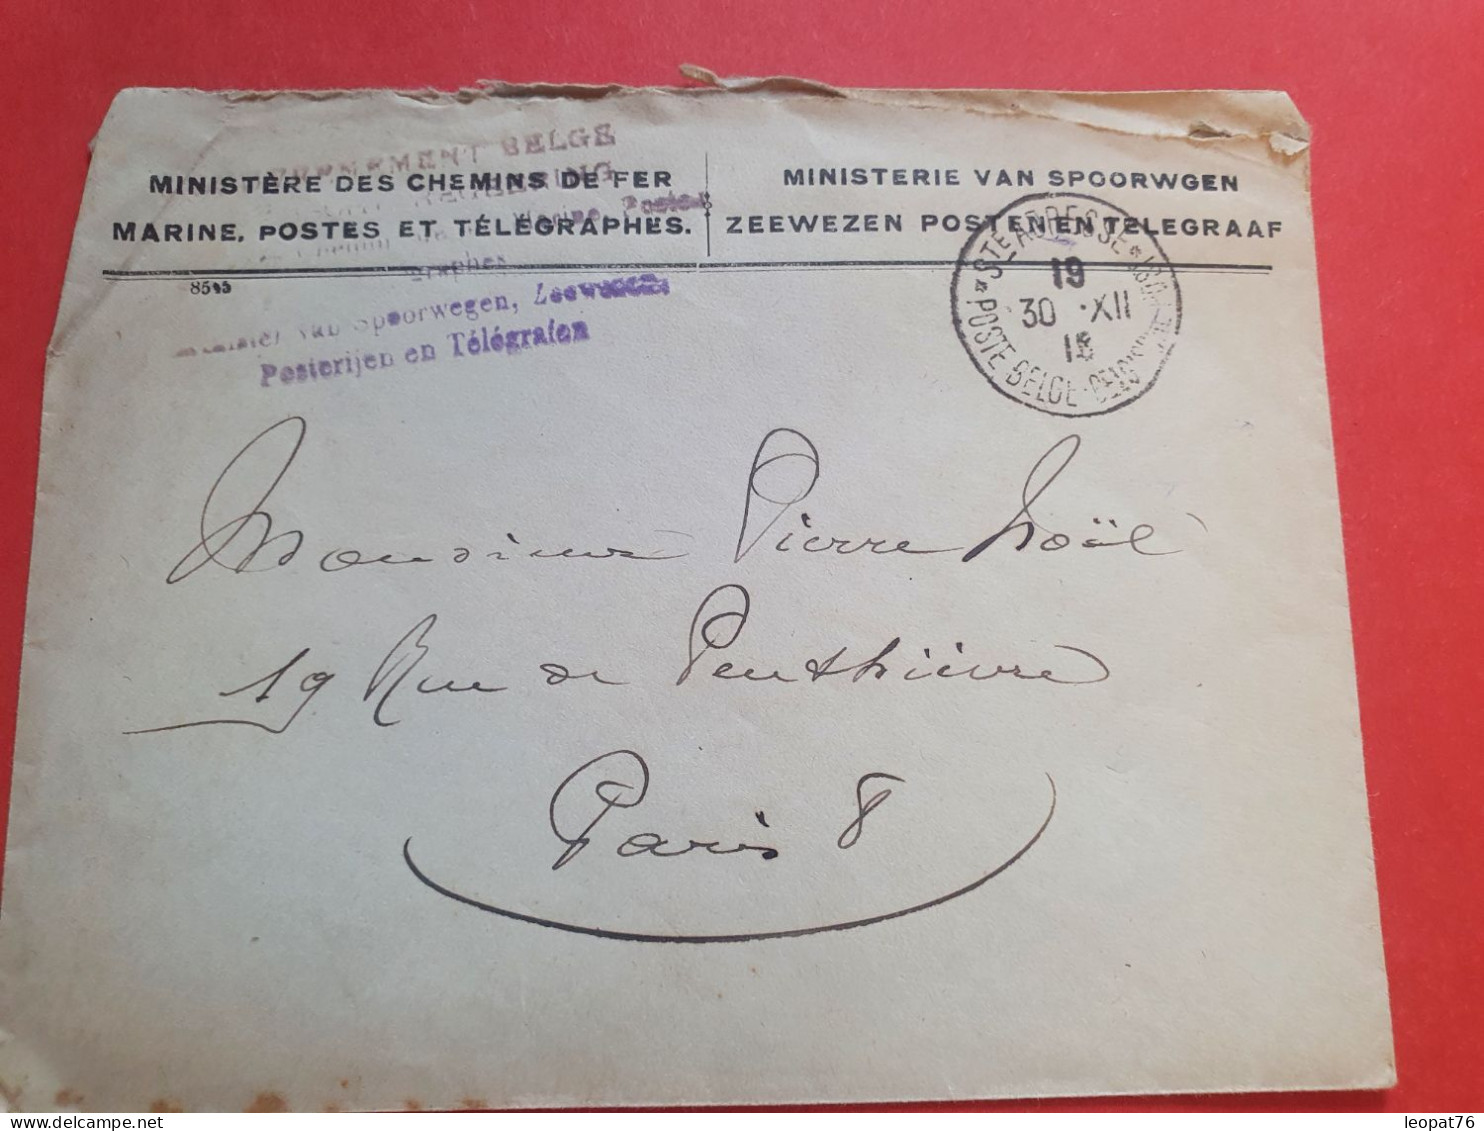 BELGE
MINISTÈRE DES CHEMINS DE FER
MARINE, POSTES ET TÉLÉGRAPHES.
MINISTERIE VAN SPOORWGEN
ZEEWEZEN POSTEN EN TELEGRAAF
8545
van Spoorwegen, Zeewezen,
Posterijen en Télégrafen
STE ADRESSE
19
30 XII
15
POSTE BELGE
Monsieur Pierre Noël
19 Rue de Penthièvre
Paris 8
leopat76